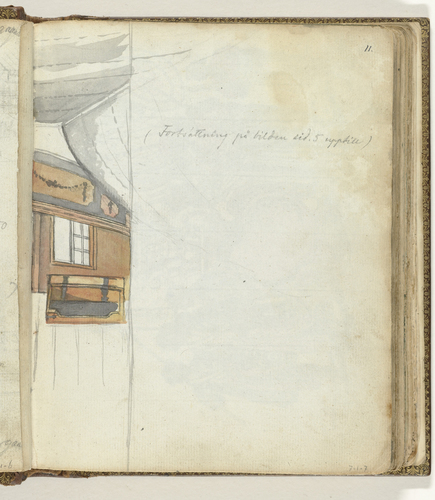 11.
(Fortsättning på bilden sid. 5 upptill)